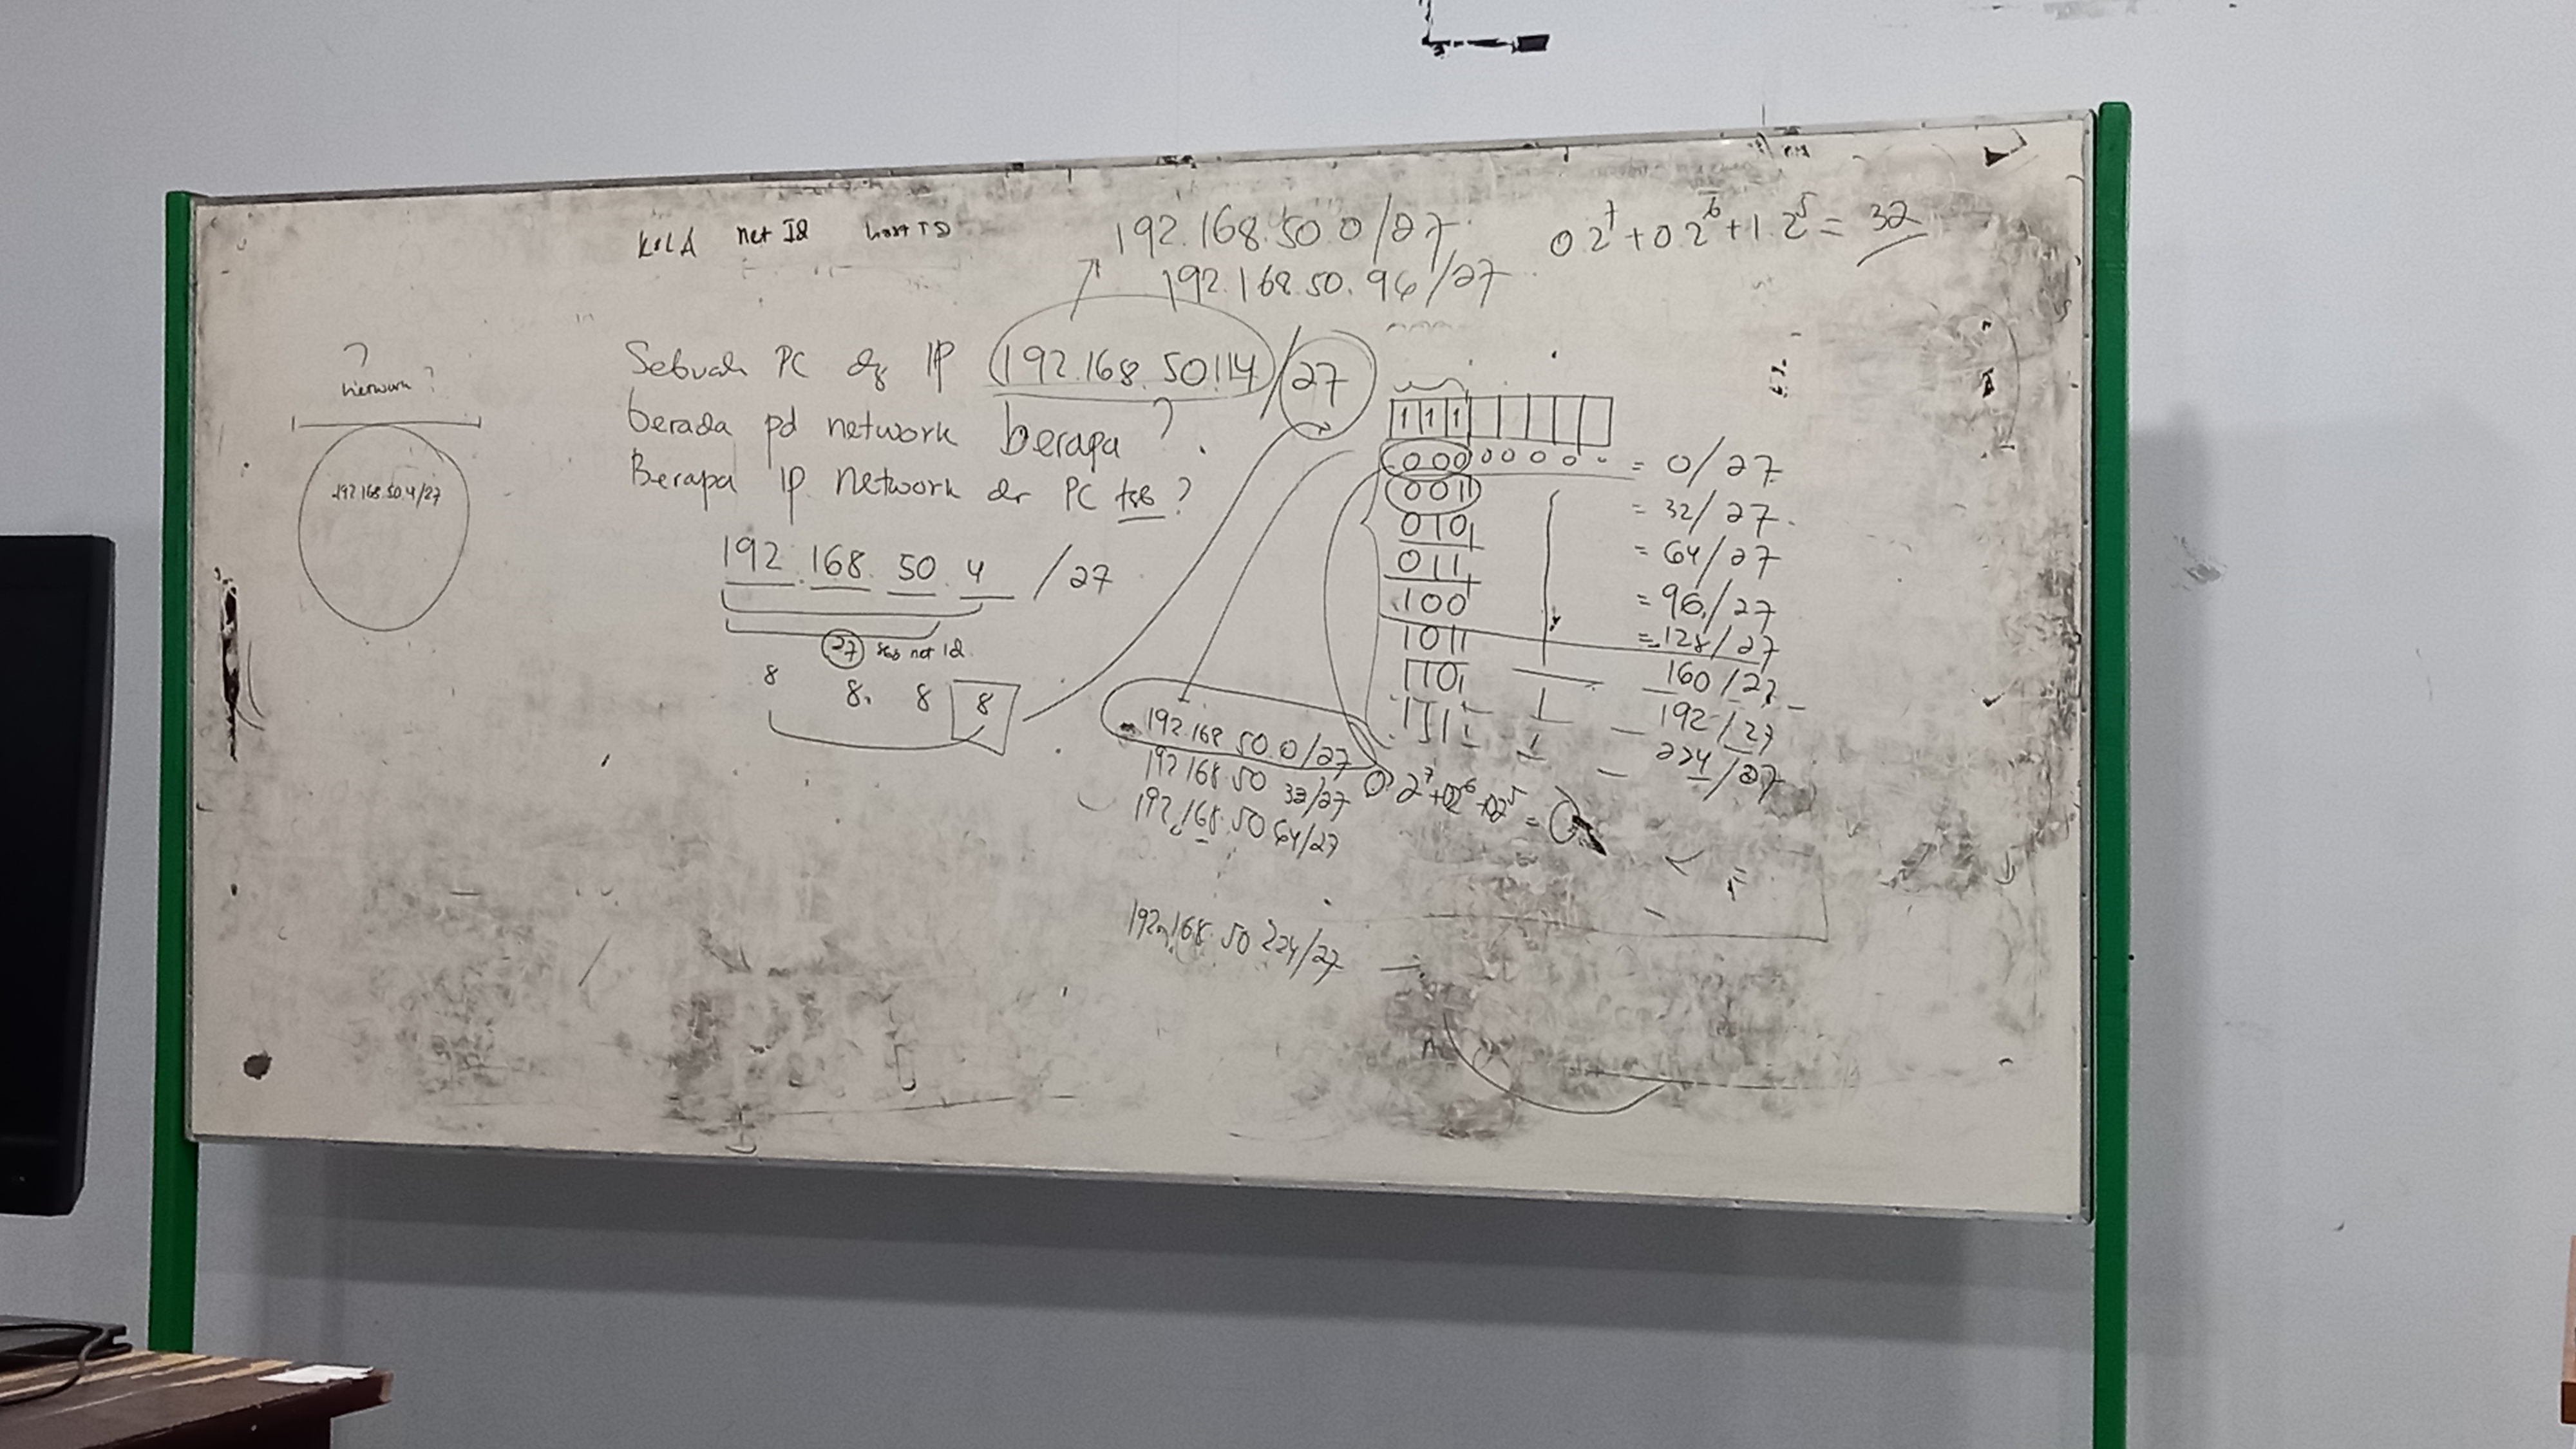 net ID host ID
192.168.50.0/27
192.168.50.96/27
0.2⁷+0.2⁶+1.2⁵= 32
?
network ?
192.168.50.4/27
Sebuah PC dg IP 192.168.50.114/27
berada pd network berapa ?
Berapa IP network dr PC tsb ?
192.168.50.4 /27
27 sub net id
8 8. 8 8
1 1 1
000 0 0 0 0 0 = 0/27
001 = 32/27
010 = 64/27
011 = 96/27
100 = 128/27
101 160/27
110 192/27
111 224/27
192.168 50.0/27
192 168.50 32/27
192.168.50 64/27
0.2⁷+0.2⁶+0.2⁵ = 0
192.168.50 224/27